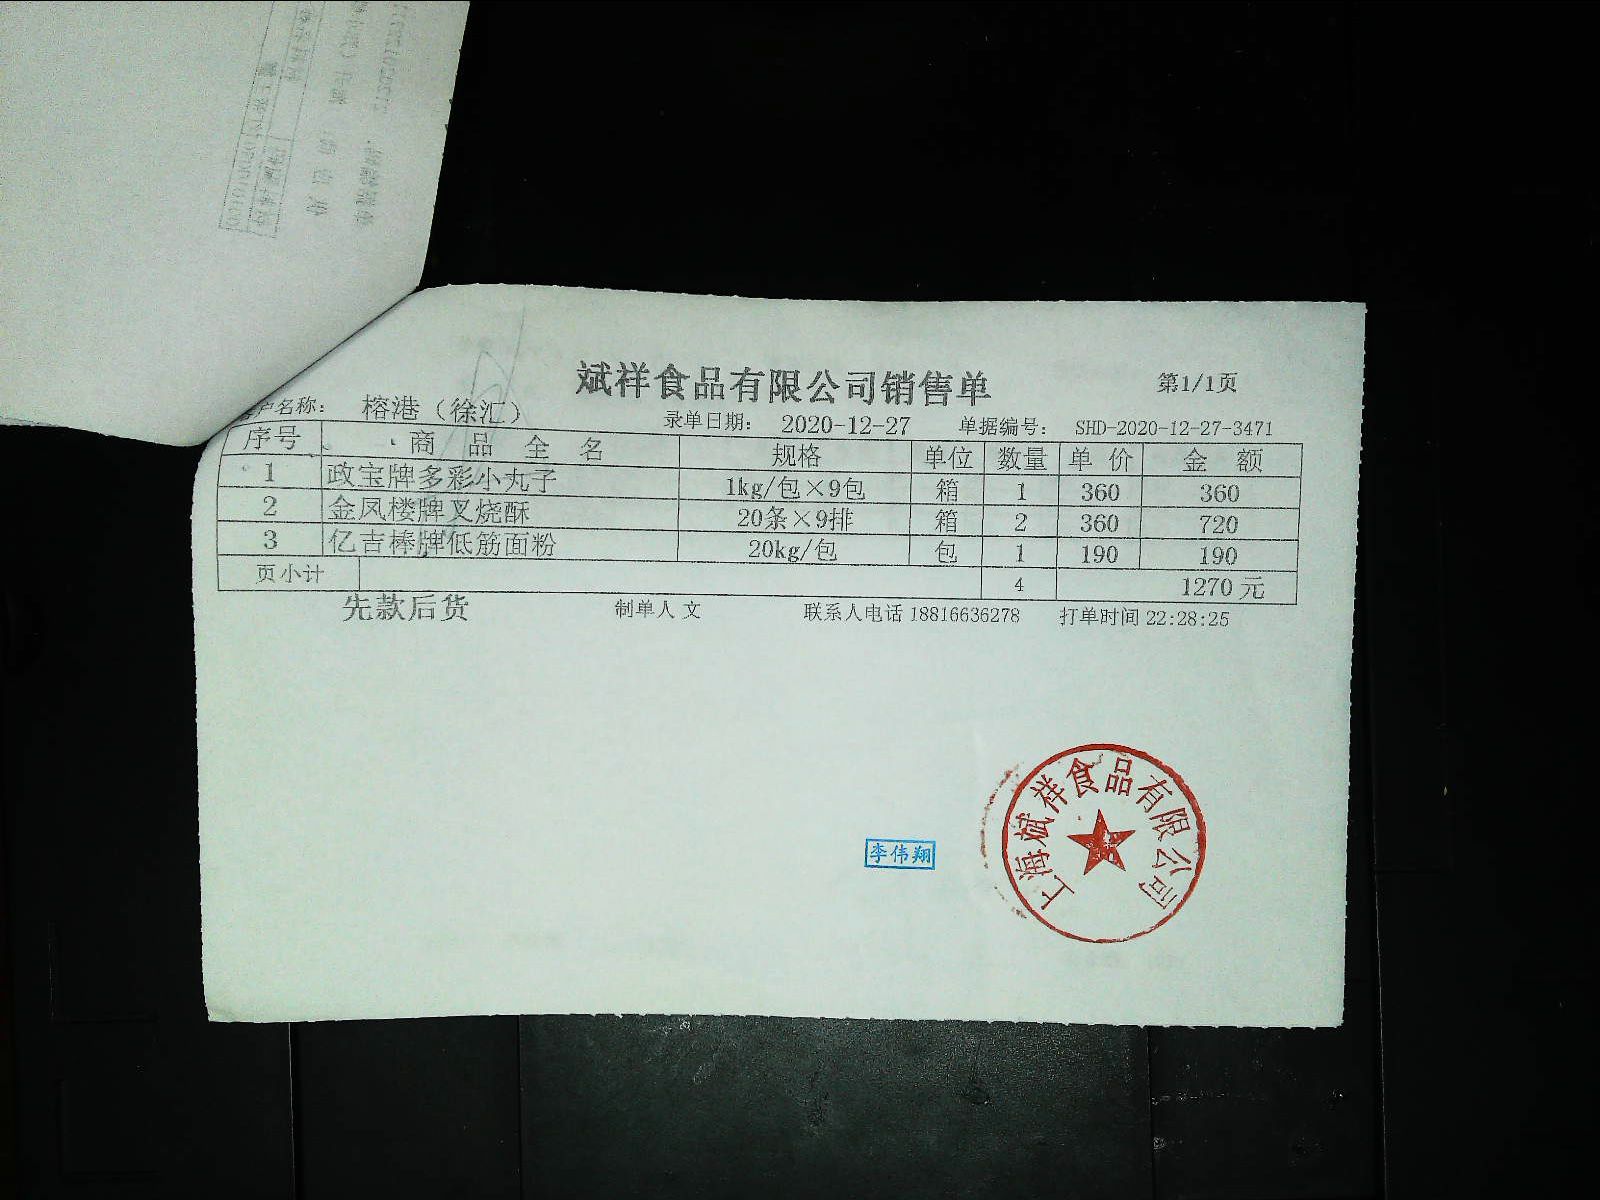 斌祥食品有限公司销售单
第1/1页
户名称： 榕港（徐汇） 录单日期： 2020-12-27 单据编号： SHD-2020-12-27-3471
序号 商 品 全 名 规格 单位 数量 单 价 金 额
1 政宝牌多彩小丸子 1kg/包×9包 箱 1 360 360
2 金凤楼牌叉烧酥 20条×9排 箱 2 360 720
3 亿吉棒牌低筋面粉 20kg/包 包 1 190 190
页小计 4 1270 元
先款后货 制单人 文 联系人电话 18816636278 打单时间 22:28:25
李伟翔
上海斌祥食品有限公司